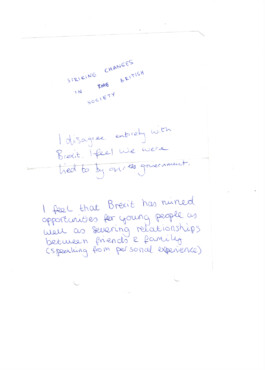 STRIKING CHANGES
IN BRITISH
SOCIETY
I disagree entirely with
Brexit I feel we were
lied to by our government.
I feel that Brexit has ruined
opportunities for young people as
well as severing relationships
between friends & family
(speaking from personal experience)